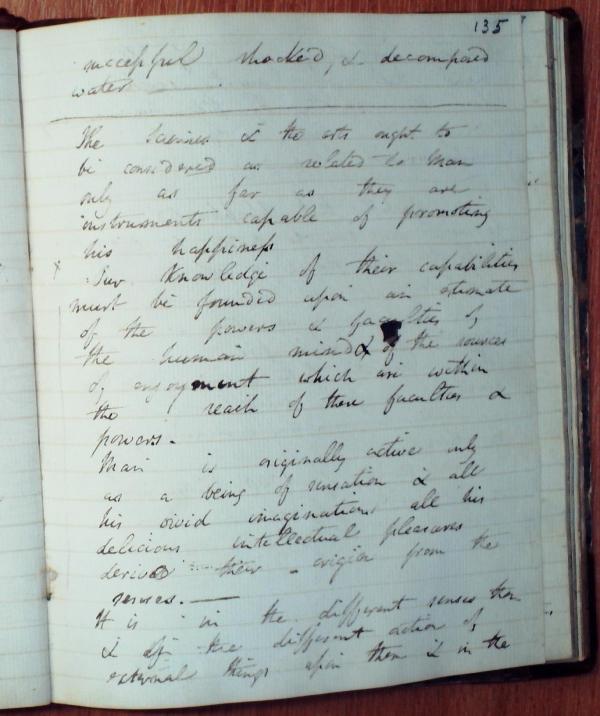 135
successful shocked, & decomposed
water
The Sciences & the arts ought to
be considered as related to Man
only as far as they are
instruments capable of promoting
his happiness
x Our Knowledge of their capabilities
must be founded upon an estimate
of the powers & faculties of
the human mind & of the sources
of enjoyment which are within
the reach of these faculties &
powers.
Man is originally active only
as a being of sensation & all
his vivid imaginations all his
delicious intellectual pleasures
derive their origin from the
senses. —
It is in the different senses then
& the different action of
external things upon them & in the